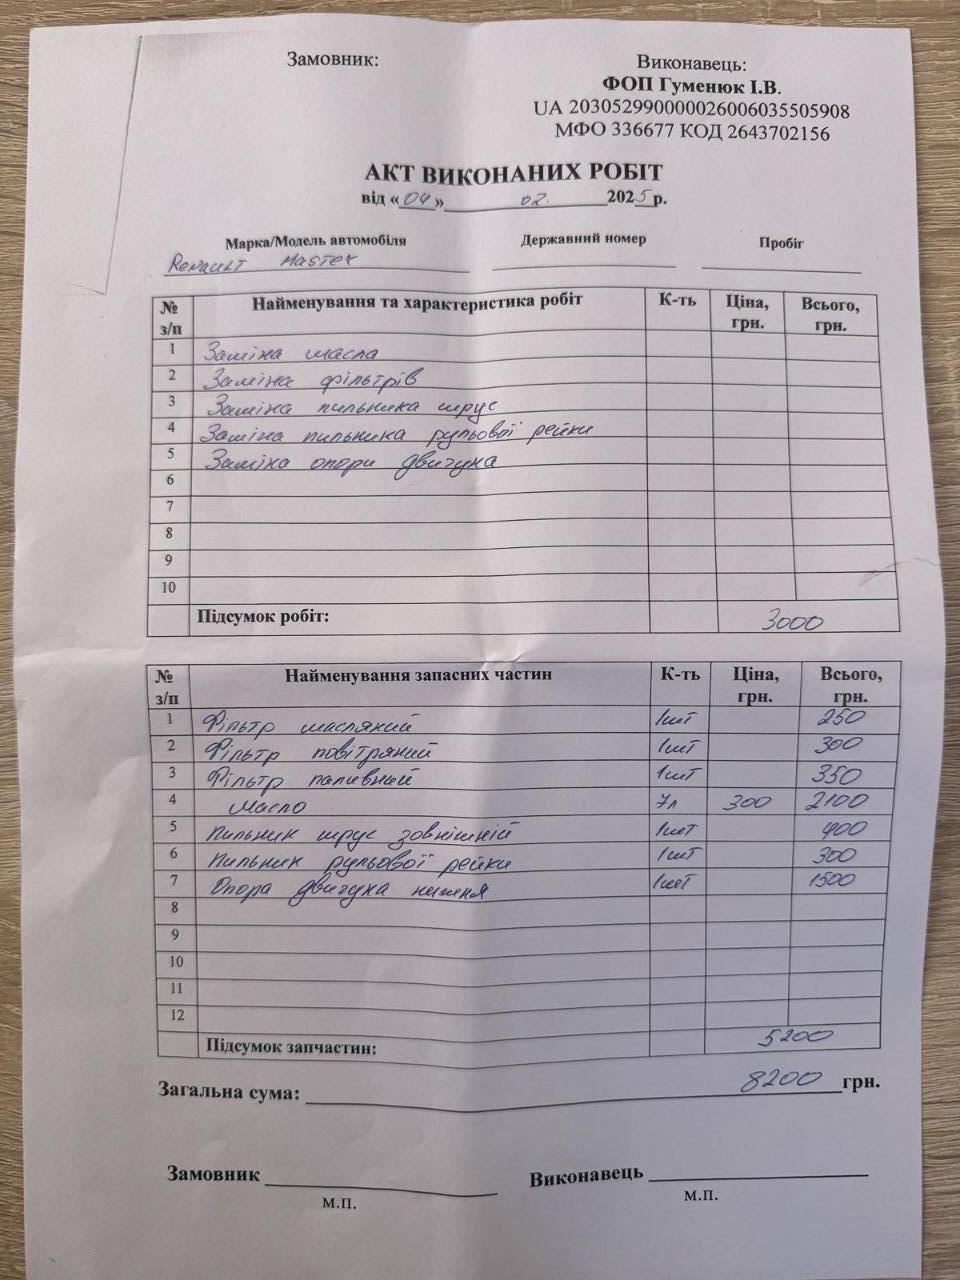 Замовник:
Виконавець:
ФОП Гуменюк І.В.
UA 203052990000026006035505908
МФО 336677 КОД 2643702156
АКТ ВИКОНАНИХ РОБІТ
від «04» 02. 2025 р.
Марка/Модель автомобіля Державний номер Пробіг
Renault Master
№ з/п Найменування та характеристика робіт К-ть Ціна, грн. Всього, грн.
1 Заміна масла
2 Заміна фільтрів
3 Заміна пильника шрус
4 Заміна пильника рульової рейки
5 Заміна опори двигуна
6
7
8
9
10
Підсумок робіт: 3000
№ з/п Найменування запасних частин К-ть Ціна, грн. Всього, грн.
1 Фільтр масляний 1шт 250
2 Фільтр повітряний 1шт 300
3 Фільтр паливний 1шт 350
4 Масло 7л 300 2100
5 Пильник шрус зовнішній 1шт 400
6 Пильник рульової рейки 1шт 300
7 Опора двигуна нижня 1шт 1500
8
9
10
11
12
Підсумок запчастин: 5200
Загальна сума: 8200 грн.
Замовник Виконавець
м.п. м.п.